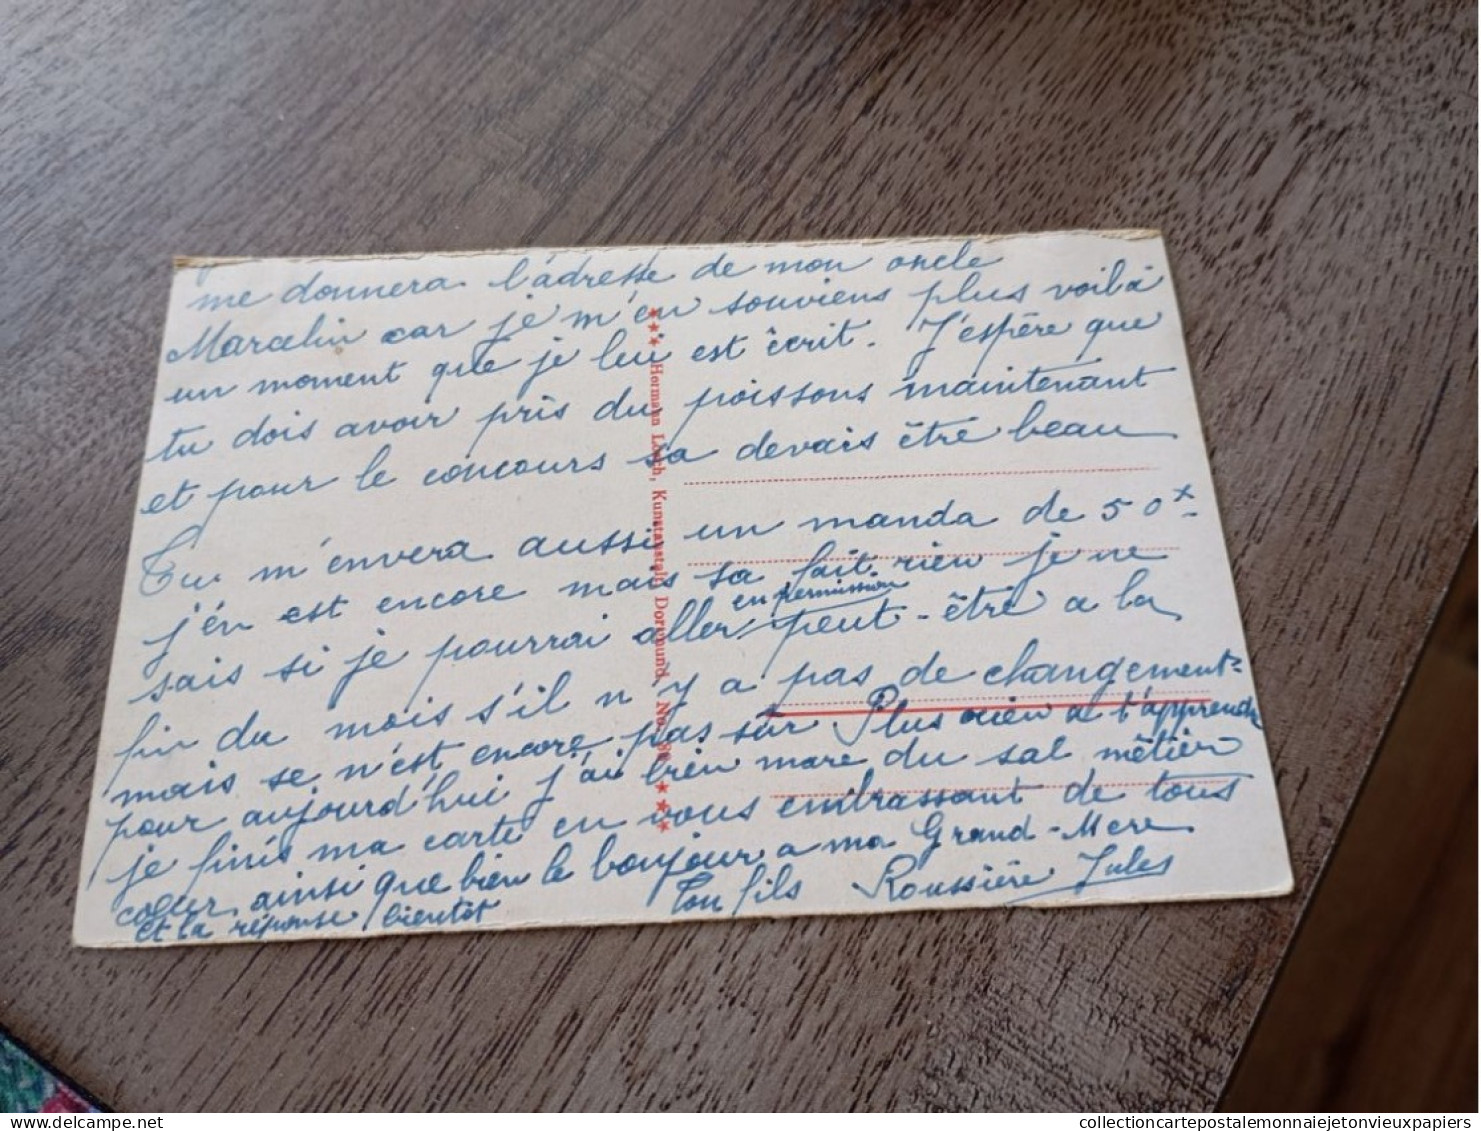 me donnera l'adresse de mon oncle
Marcelin car je m'en souviens plus voilà
un moment que je lui est écrit. J'espère que
tu dois avoir pris du poissons maintenant
et pour le concours sa devais être beau
Tu m'envera aussi un manda de 50
j'en est encore mais sa fait rien je ne
sais si je pourrai aller en permission peut-être a la
fin du mois s'il n'y a pas de changement
mais se n'est encore pas sûr Plus rien a t'apprendre
pour aujourd'hui j'ai bien mare du sal métier
je finis ma carte en vous embrassant de tous
cœur ainsi que bien le bonjour a ma Grand-Mere
et la réponse bientôt Ton fils Roussière Jules
*** Hermann Lorch, Kunstanstalt, Dortmund. No. ***
collectioncartepostalemonnaiejetonvieuxpapiers